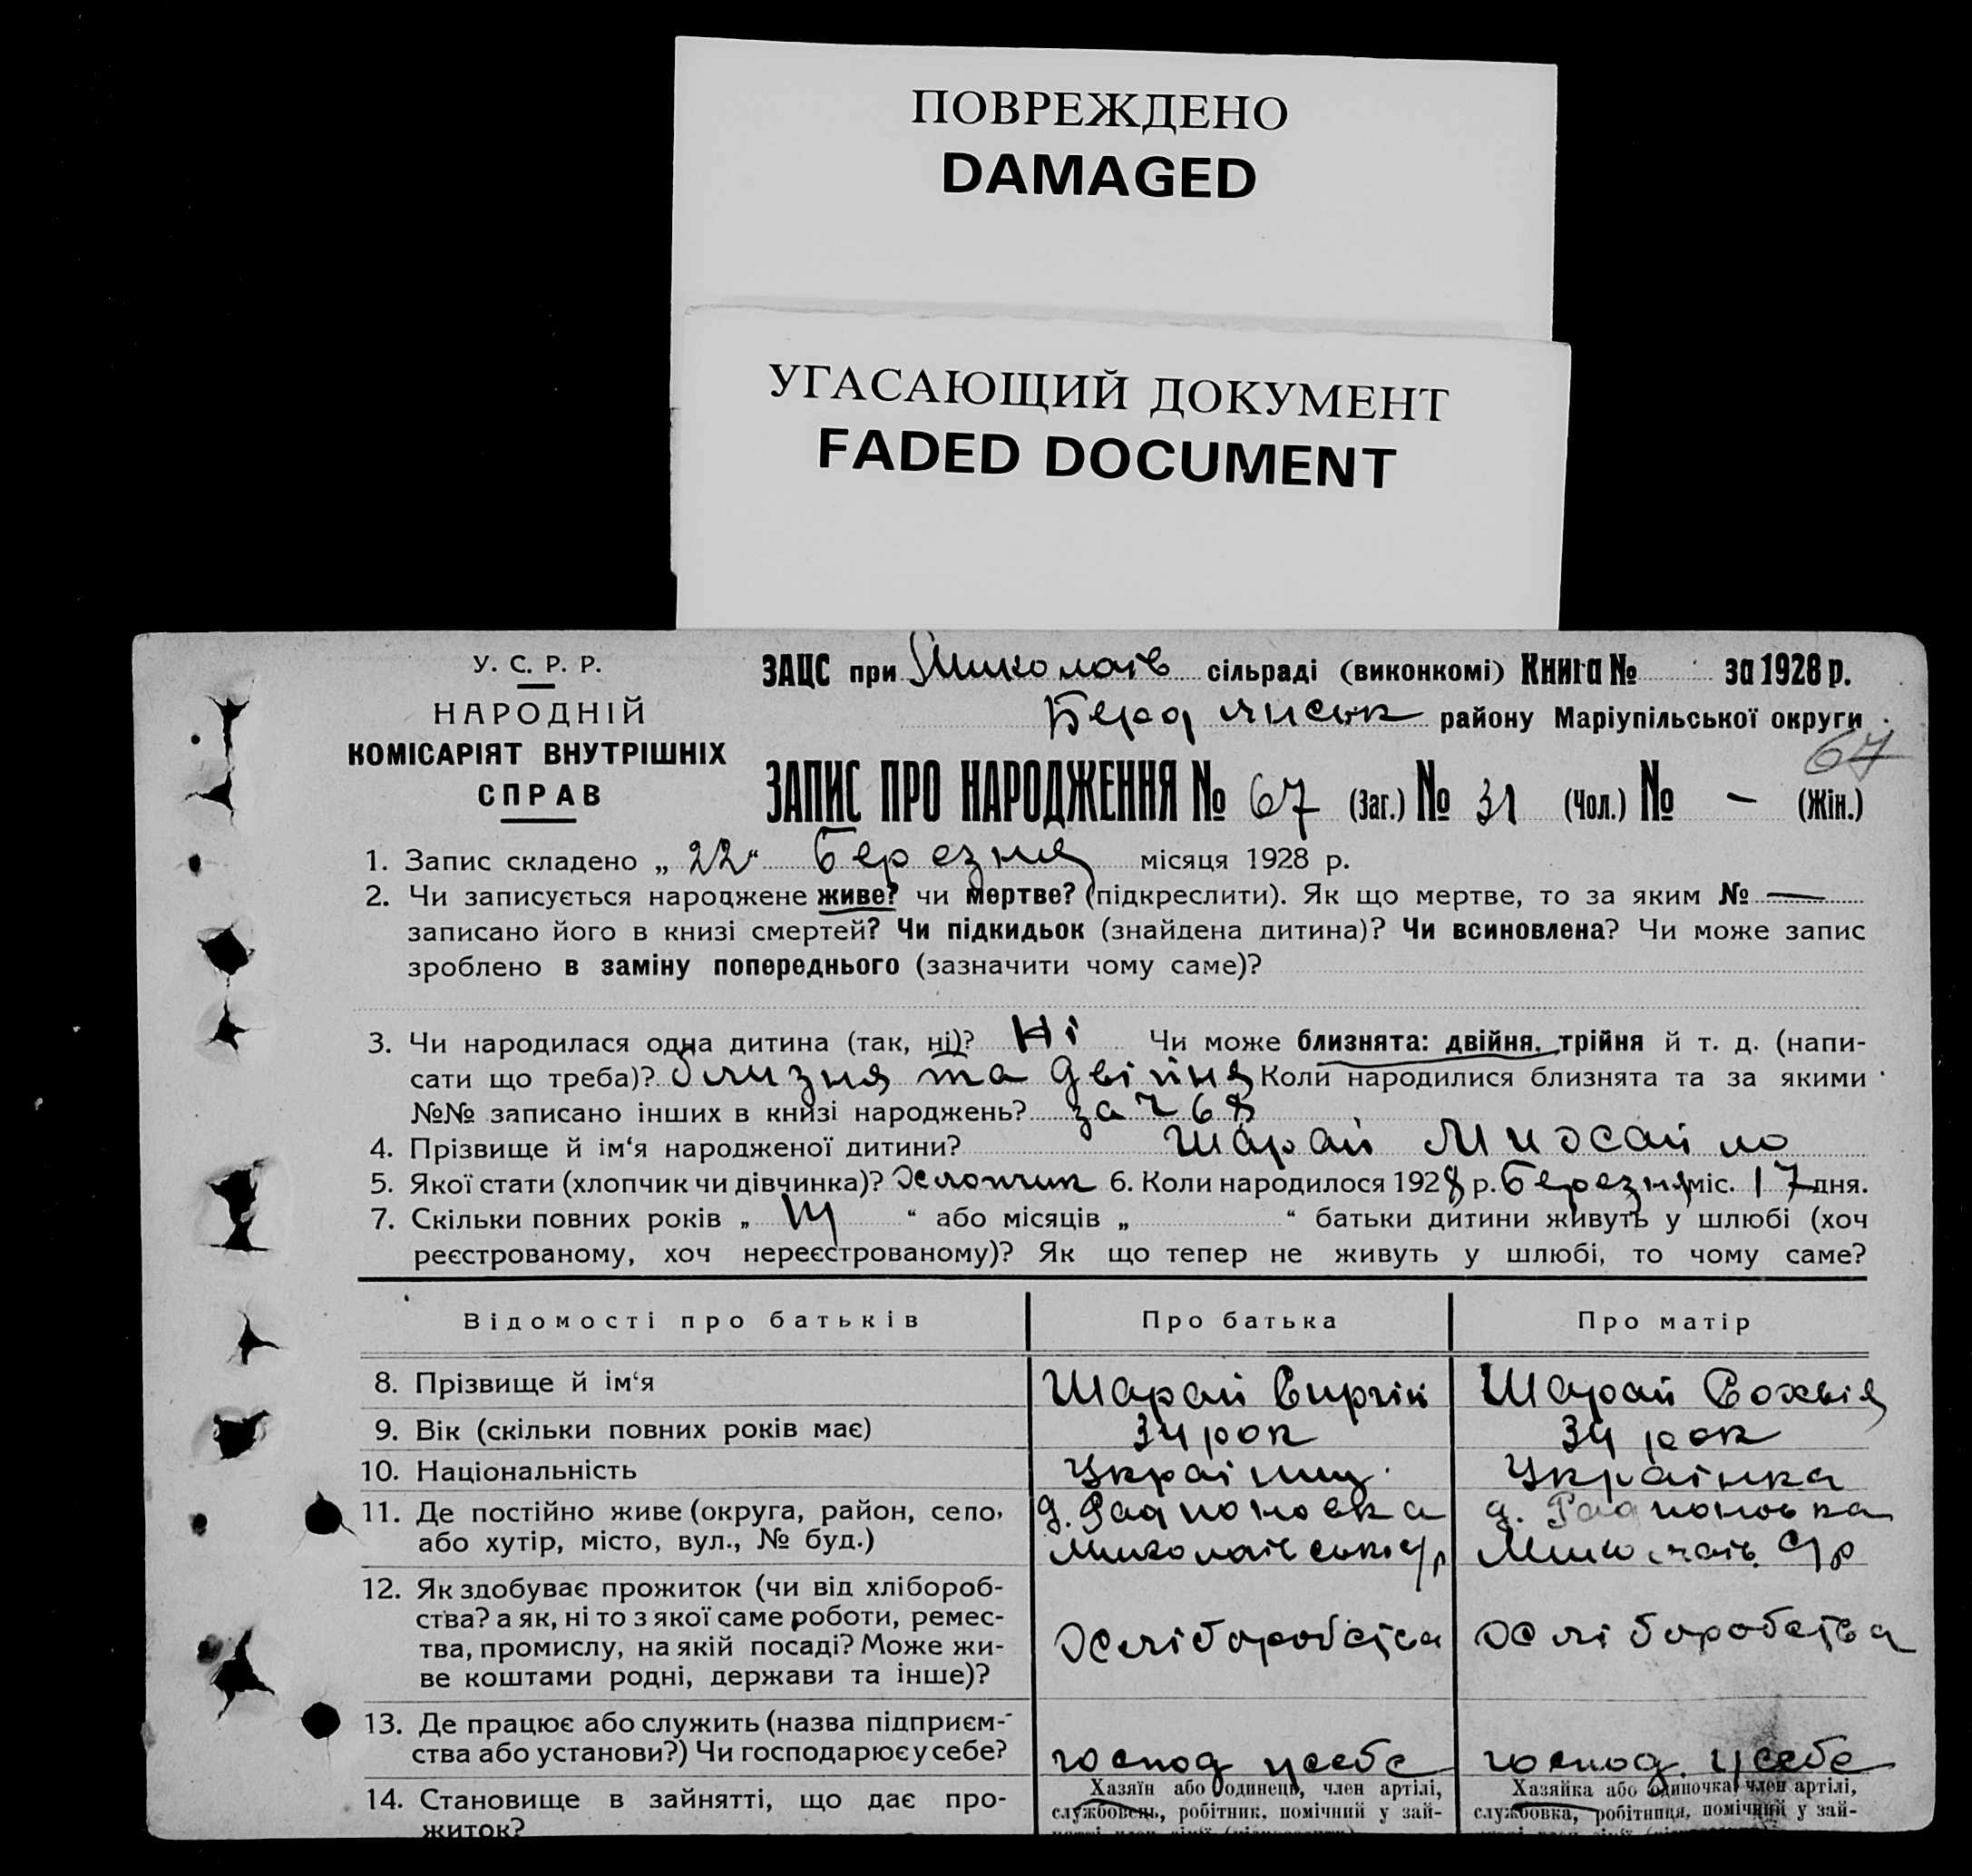 ПОВРЕЖДЕНО
DAMAGED
УГАСАЮЩИЙ ДОКУМЕНТ
FADED DOCUMENT
У. С. Р. Р.
НАРОДНІЙ
КОМІСАРІЯТ ВНУТРІШНІХ
СПРАВ
ЗАЦС при Миколаїв сільраді (виконкомі) Книга № за 1928 р.
Бердянськ району Маріупільської округи
67
ЗАПИС ПРО НАРОДЖЕННЯ № 67 (Заг.) № 31 (Чол.) № — (Жін.)
1. Запис складено „ 22 “ березня місяця 1928 р.
2. Чи записується народжене живе? чи мертве? (підкреслити). Як що мертве, то за яким № —
записано його в книзі смертей? Чи підкидьок (знайдена дитина)? Чи всиновлена? Чи може запис
зроблено в заміну попереднього (зазначити чому саме)?
3. Чи народилася одна дитина (так, ні)? Ні Чи може близнята: двійня, трійня й т. д. (напи-
сати що треба)? близня та двійня Коли народилися близнята та за якими
№№ записано інших в книзі народжень? за ч 68
4. Прізвище й ім‘я народженої дитини? Шарай Михайло
5. Якої стати (хлопчик чи дівчинка)? Хлопчик 6. Коли народилося 1928 р. березня міс. 17 дня.
7. Скільки повних років „ “ або місяців „ “ батьки дитини живуть у шлюбі (хоч
реєстрованому, хоч нереєстрованому)? Як що тепер не живуть у шлюбі, то чому саме?
Відомості про батьків Про батька Про матір
8. Прізвище й ім‘я Шарай Шарай
9. Вік (скільки повних років має) 34 рок 34 рок
10. Національність Україннц. Українка
11. Де постійно живе (округа, район, село,
або хутір, місто, вул., № буд.)
д. д.
Миколаївської с/р Микол с/р
12. Як здобуває прожиток (чи від хлібороб-
ства? а як, ні то з якої саме роботи, ремес-
тва, промислу, на якій посаді? Може жи-
ве коштами родні, держави та інше)?
Хліборобства Хліборобства
13. Де працює або служить (назва підприєм-
ства або установи?) Чи господарює у себе?
господ усебе господ. усебе
14. Становище в зайнятті, що дає про-
житок?
Хазяїн або одинець, член артілі,
службовець, робітник, помічний у зай-
Хазяйка або одиночка член артілі,
службовка, робітниця, помічний у зай-